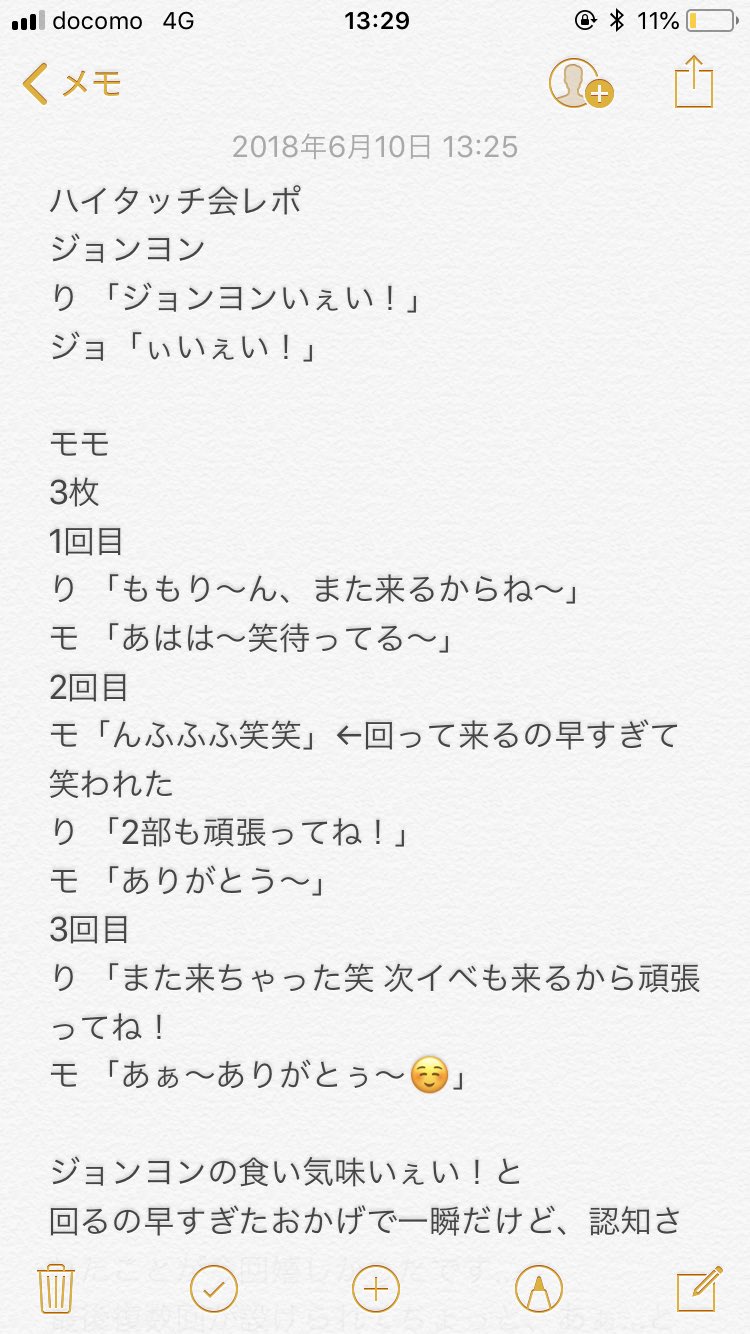 docomo 4G 13:29 11%
メモ
2018年6月10日 13:25
ハイタッチ会レポ
ジョンヨン
り 「ジョンヨンいぇい！」
ジョ「ぃいぇい！」
モモ
3枚
1回目
り 「ももり〜ん、また来るからね〜」
モ 「あはは〜笑待ってる〜」
2回目
モ「んふふふ笑笑」←回って来るの早すぎて
笑われた
り 「2部も頑張ってね！」
モ 「ありがとう〜」
3回目
り 「また来ちゃった笑 次イベも来るから頑張
ってね！
モ 「あぁ〜ありがとぅ〜☺️」
ジョンヨンの食い気味いぇい！と
回るの早すぎたおかげで一瞬だけど、認知さ